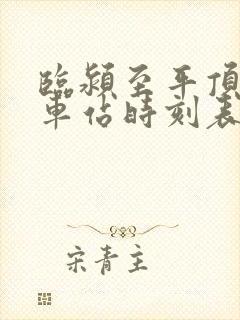 臨潁至平頂
車站時刻表
宋青主